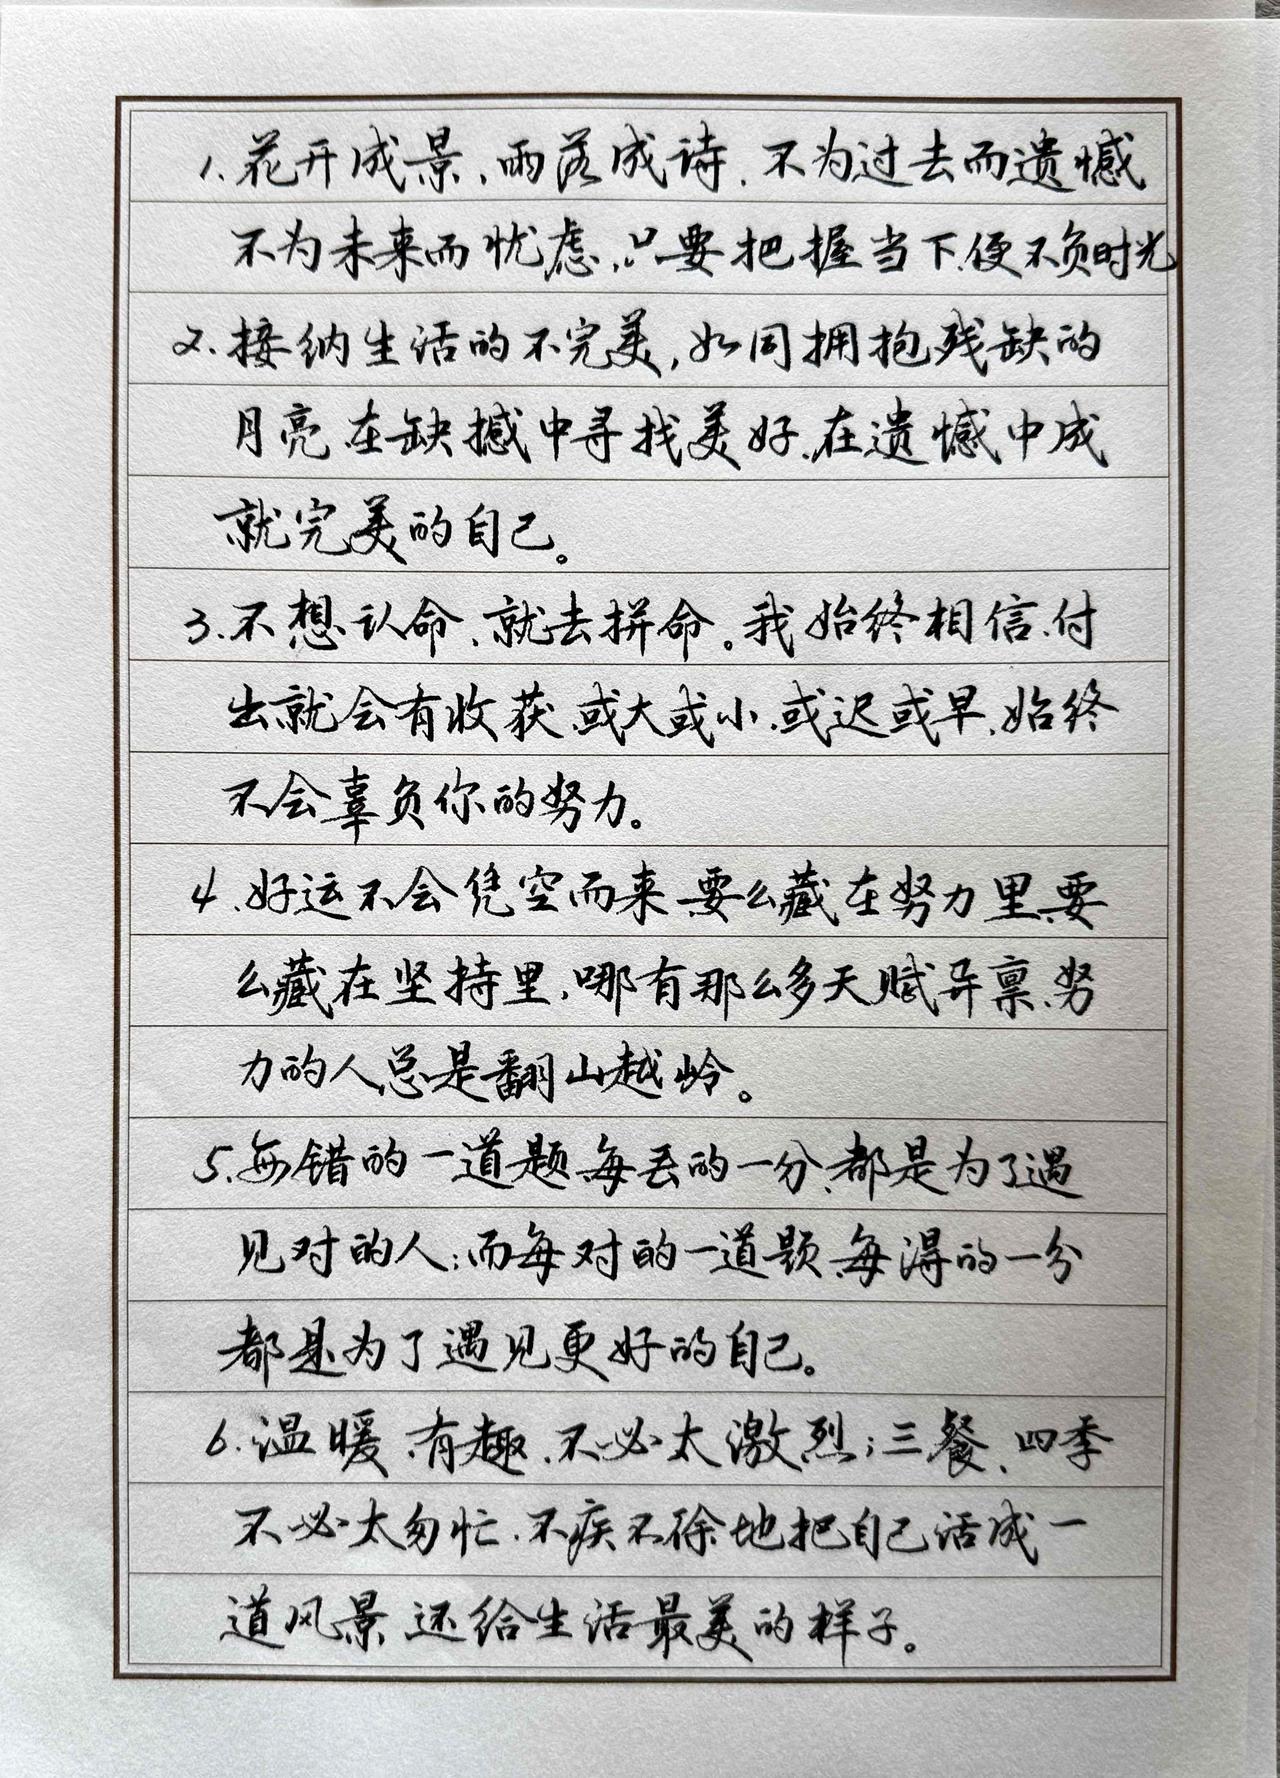 1.花开成景,雨落成诗,不为过去而遗憾
不为未来而忧虑,只要把握当下,便不负时光
2.接纳生活的不完美,如同拥抱残缺的
月亮在缺撼中寻找美好,在遗憾中成
就完美的自己。
3.不想认命,就去拼命。我始终相信,付
出就会有收获,或大或小,或迟或早,始终
不会辜负你的努力。
4.好运不会凭空而来,要么藏在努力里,要
么藏在坚持里,哪有那么多天赋异禀,努
力的人总是翻山越岭。
5.每错的一道题,每丢的一分,都是为了遇
见对的人;而每对的一道题,每得的一分
都是为了遇见更好的自己。
6.温暖,有趣,不必太激烈;三餐、四季
不必太匆忙,不疾不徐地把自己活成一
道风景,还给生活最美的样子。